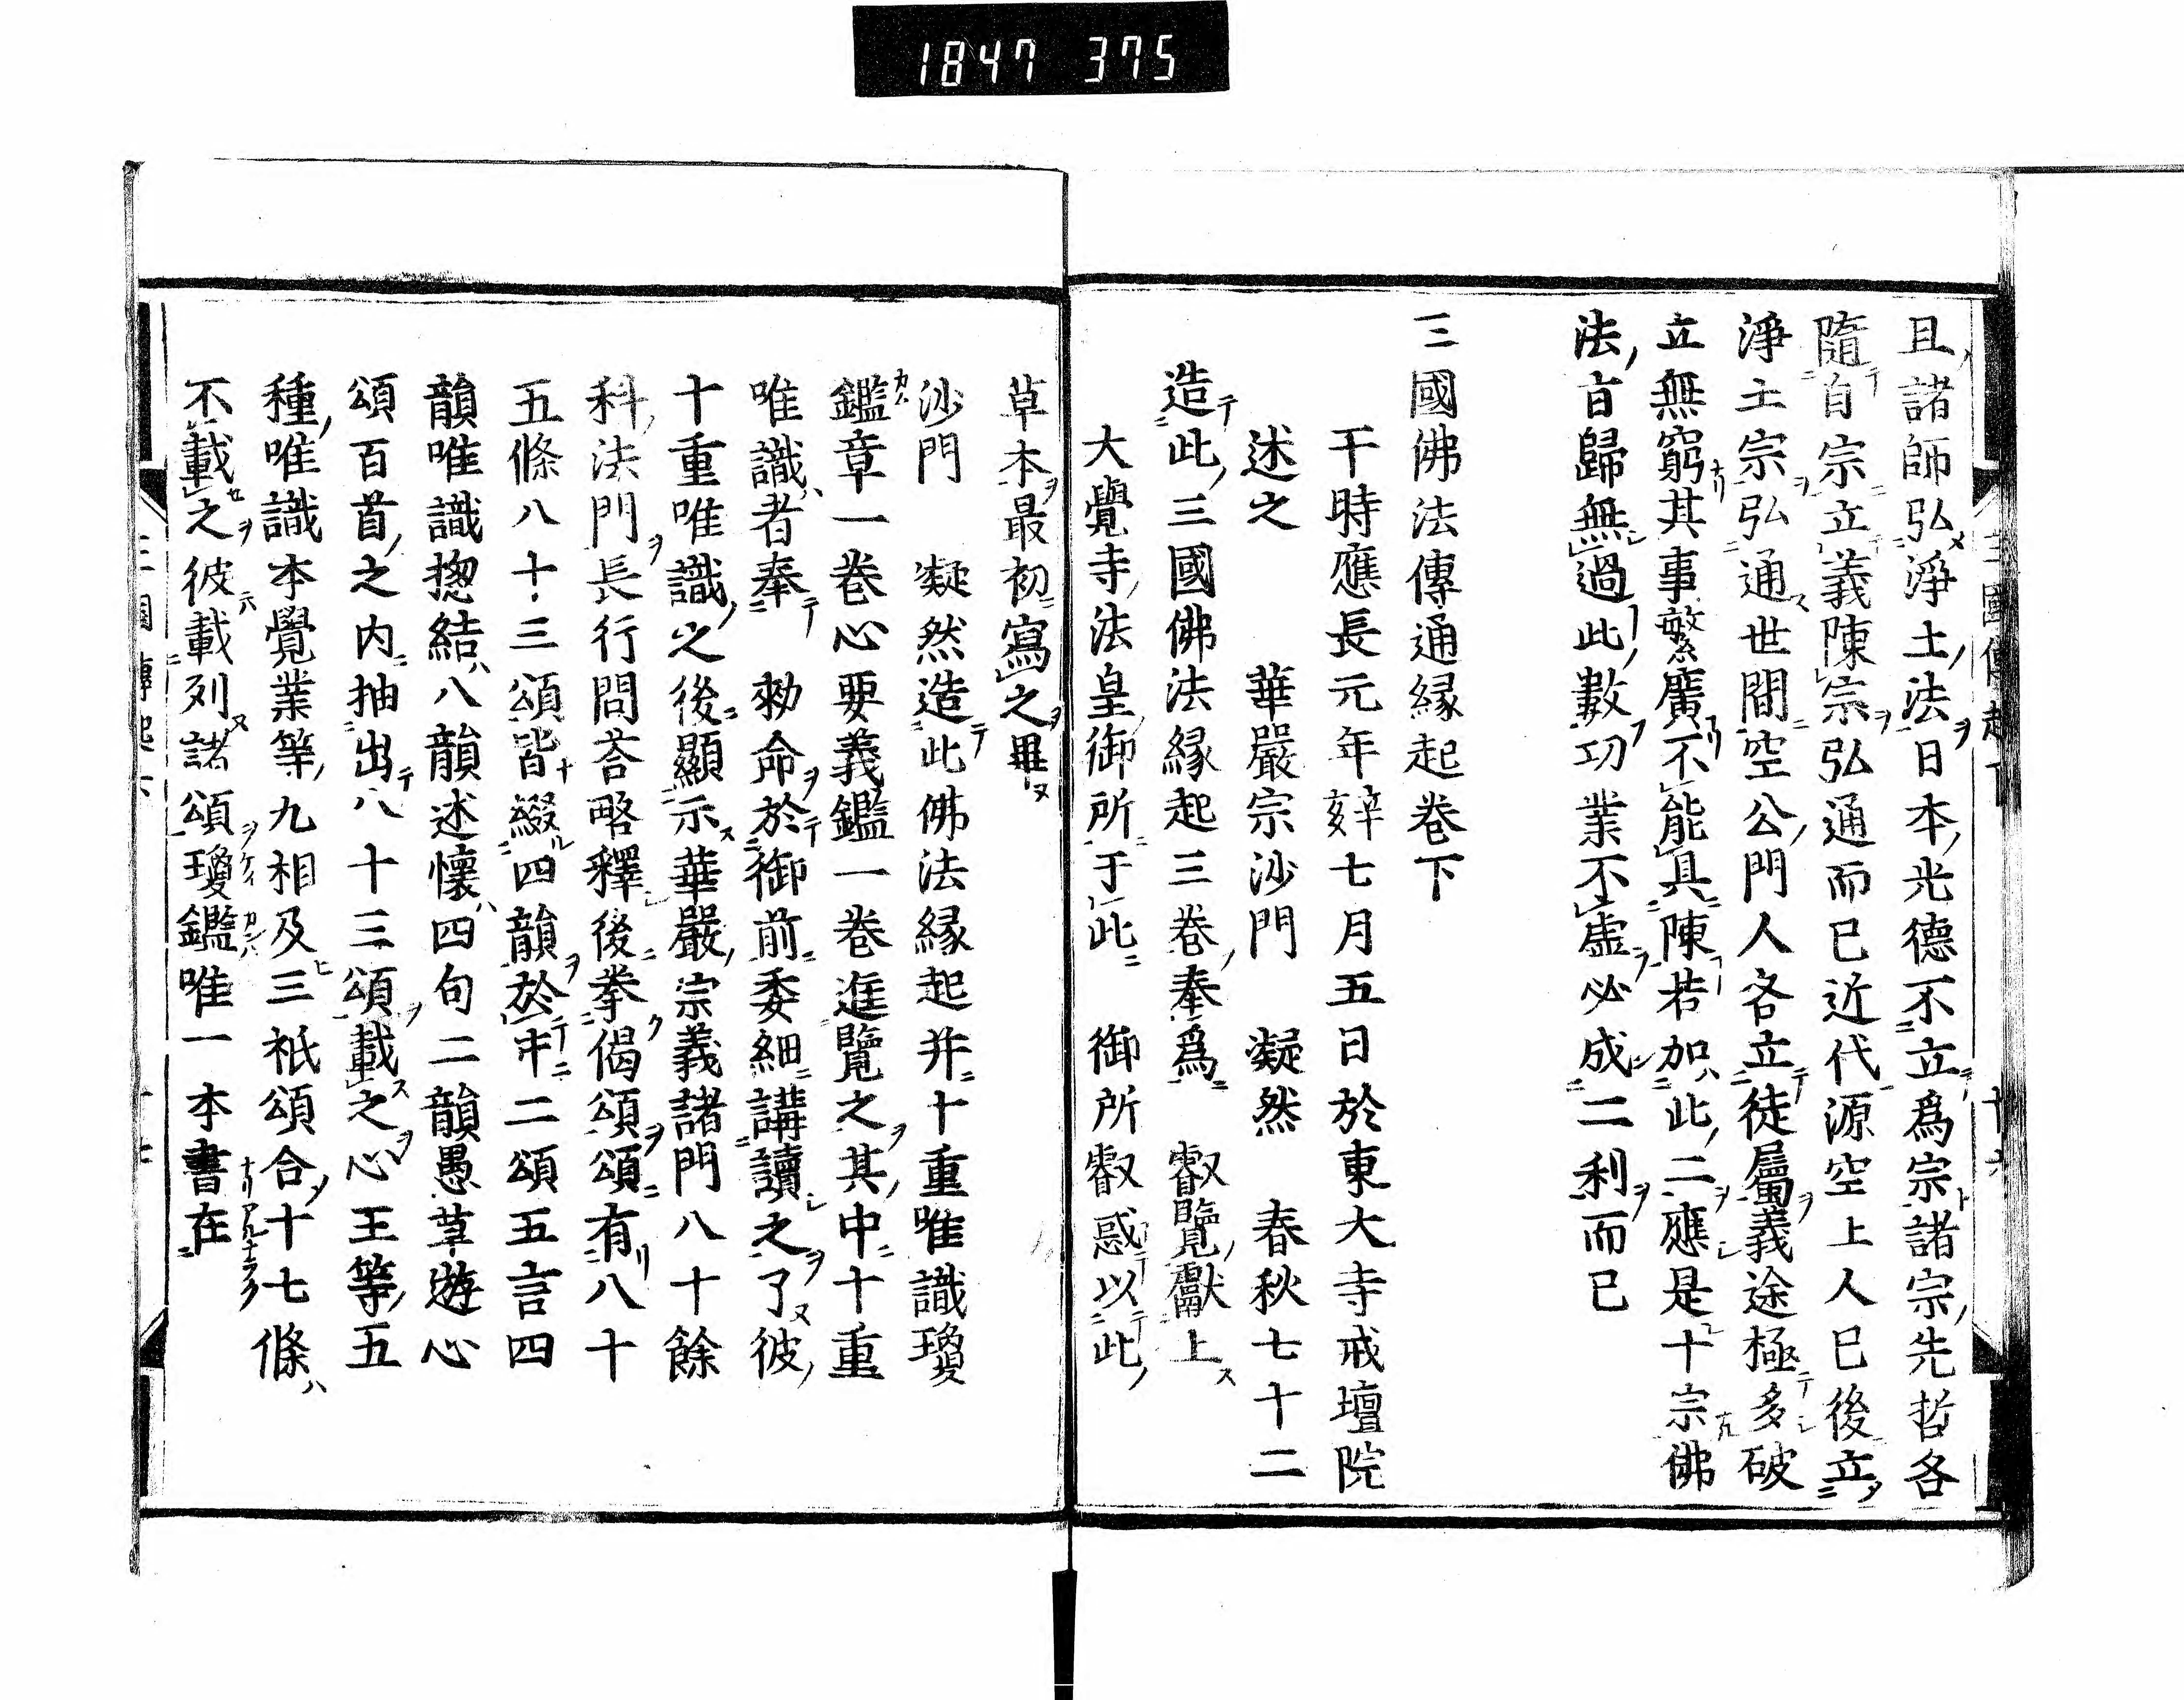 1847 375
且諸師弘淨土法日本光德不立爲宗諸宗先哲各
隨自宗立義陳宗弘通而已近代源空上人已後立
淨土宗弘通世間空公門人各立徒屬義途極多破
立無窮其事繁廣不能具陳若加此二應是十宗佛
法旨歸無過此數功業不虛必成二利而已
三國佛法傳通縁起卷下
于時應長元年辛亥七月五日於東大寺戒壇院
述之　華嚴宗沙門　凝然　春秋七十二
造此三國佛法縁起三卷奉爲　叡覽獻上
大覺寺法皇御所于此　御所叡感以此
草本最初寫之畢
沙門　凝然造此佛法縁起并十重唯識瓊
鑑章一卷心要義鑑一卷進覽之其中十重
唯識者奉　勅命於御前委細講讀之了彼
十重唯識之後顯示華嚴宗義諸門八十餘
科法門長行問荅略釋後擧偈頌頌有八十
五條八十三頌皆綴四韻於中二頌五言四
韻唯識揔結八韻述懷四句二韻愚草遊心
頌百首之内抽出八十三頌載之心王等五
種唯識本覺業等九相及三祇頌合十七條
不載之彼載列諸頌瓊鑑唯一本書在